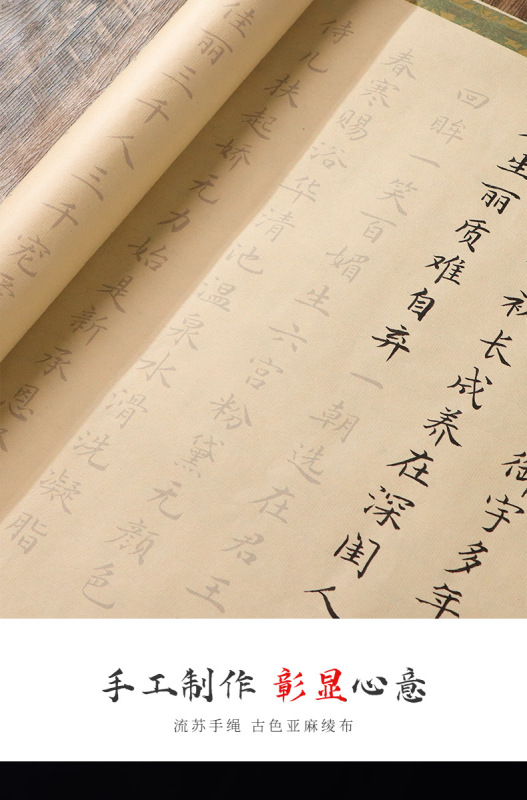 御宇多年
初长成养在深闺人
生丽质难自弃一朝选在君王
回眸一笑百媚生六宫粉黛无颜色
春寒赐浴华清池温泉水滑洗凝脂
侍儿扶起娇无力始是新承恩
佳丽三千人三千宠
手工制作 彰显心意
流苏手绳 古色亚麻绫布